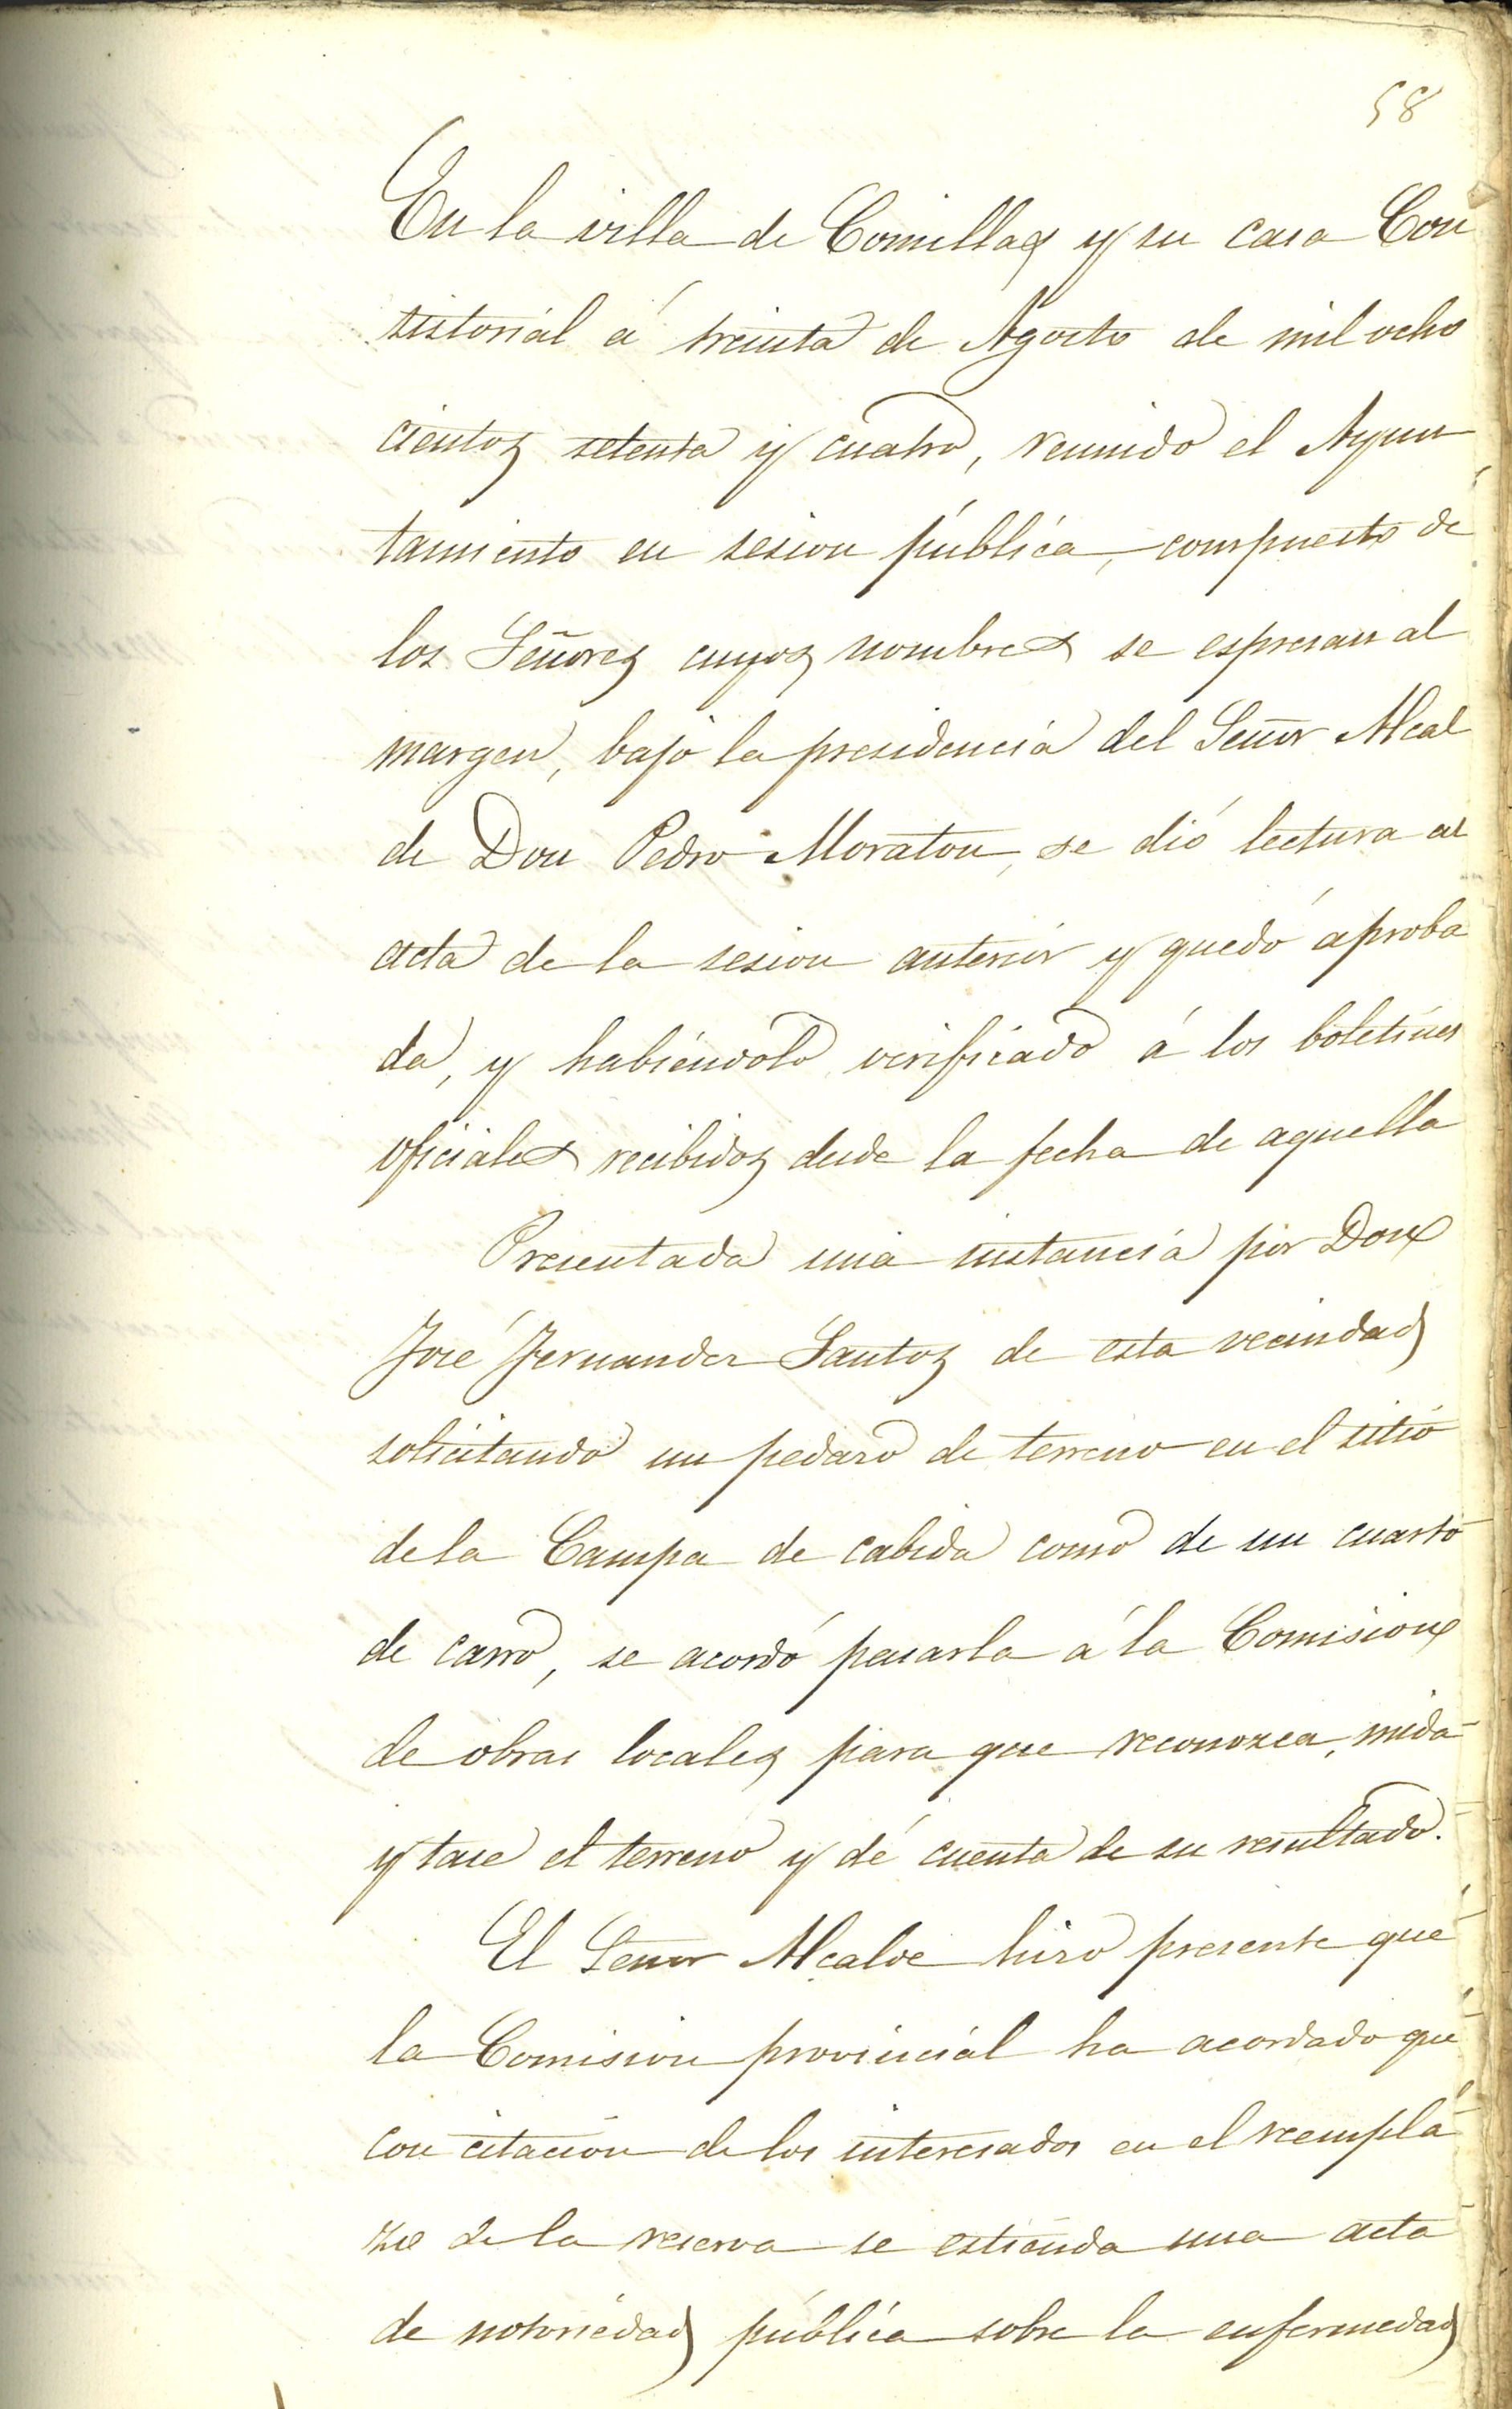 58
En la villa de Comillas y su casa Con
sistorial á treinta de Agosto de mil ocho
cientos setenta y cuatro, reunido el Ayun
tamiento en sesion pública, compuesto de
los Señores cuyos nombres se espresan al
margen, bajo la presidencia del Señor Alcal
de Don Pedro Moraton, se dió lectura al
acta de la sesion anterior y quedó aproba
da, y habiéndolo verificado á los boletines
oficiales recibidos desde la fecha de aquella
Presentada una instancia por Don
José Fernandez Santos de esta vecindad
solicitando un pedazo de terreno en el sitio
de la Campa de cabida como de un cuarto
de carro, se acordó pasarla á la Comision
de obras locales para que reconozca, mida
y tase el terreno y dé cuenta de su resultado.
El Señor Alcalde hizo presente que
la Comision provincial ha acordado que
con citacion de los interesados en el reempla
zo de la reserva se estienda una acta
de notoriedad pública sobre la enfermedad